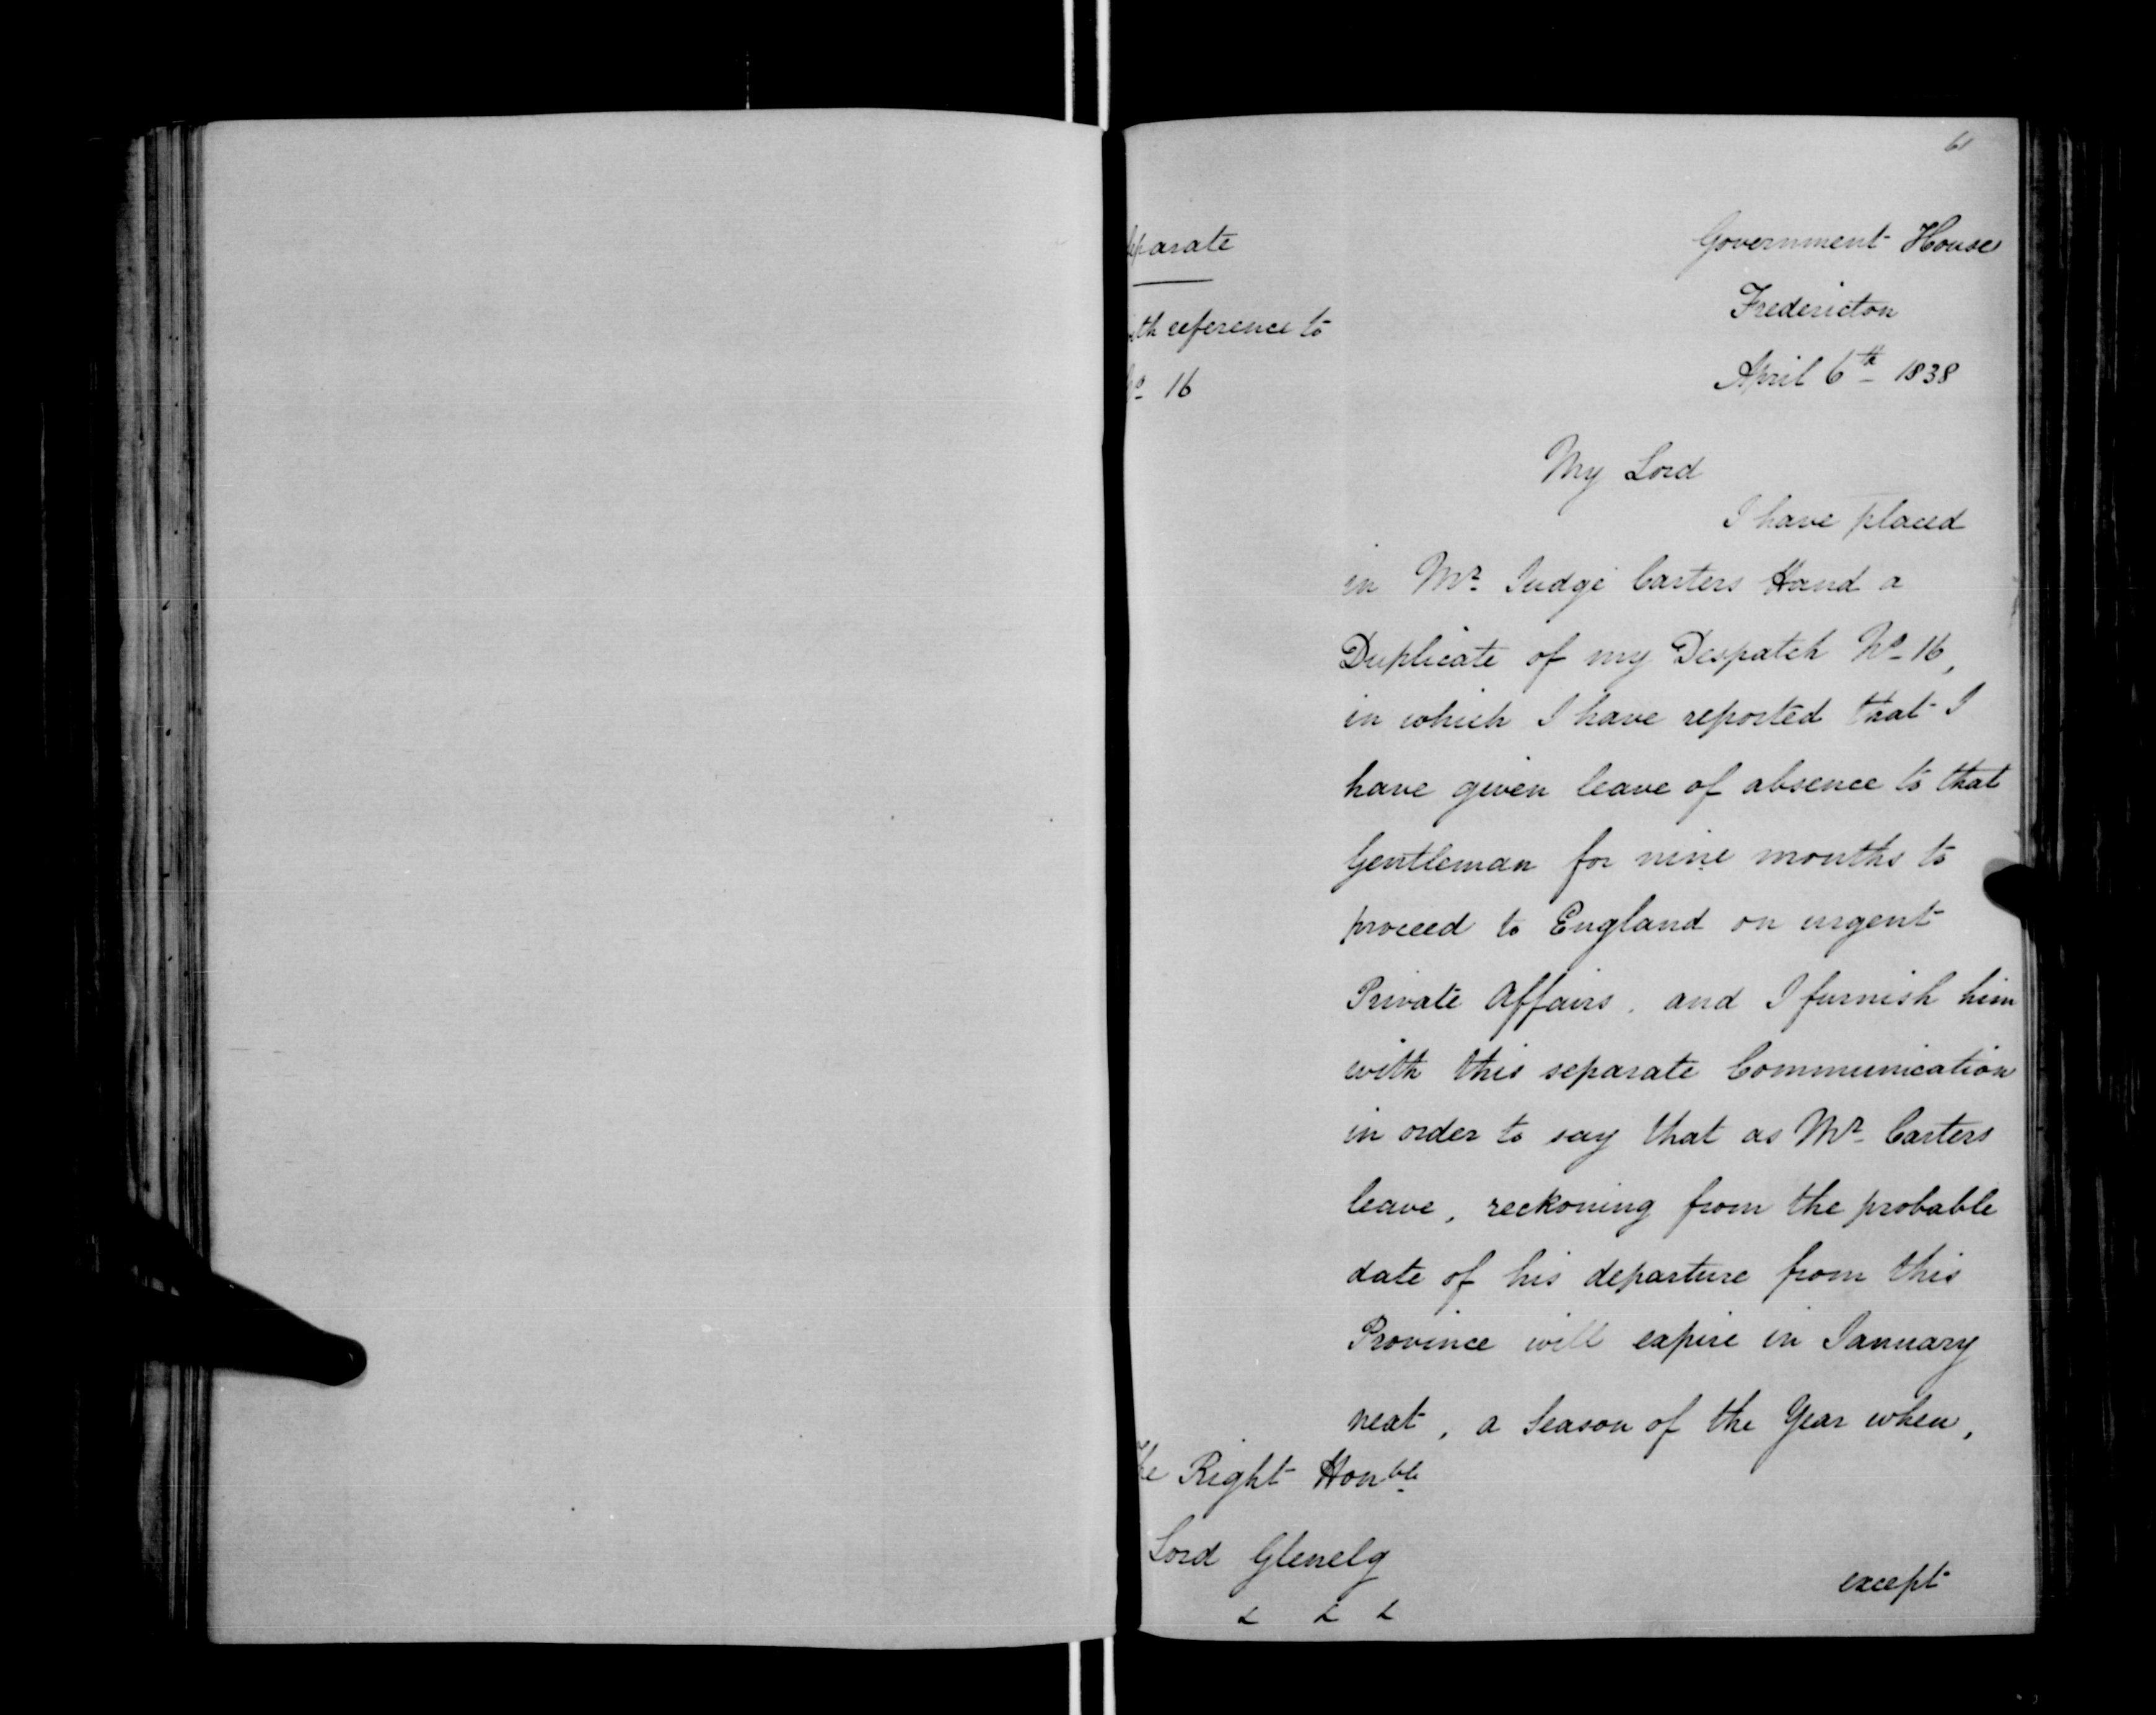 61
Separate
Government House
With reference to
Fredericton
No 16
April 6th 1838
My Lord
I have placed
in Mr Judge Carters Hand a
Duplicate of my Despatch No 16,
in which I have reported that I
have given leave of absence to that
Gentleman for nine months to
proceed to England on urgent
Private Affairs, and I furnish him
with this separate Communication
in order to say that as Mr Carters
leave, reckoning from the probable
date of his departure from this
Province will expire in January
next, a Season of the Year when,
The Right Honble
Lord Glenelg
& & &
except